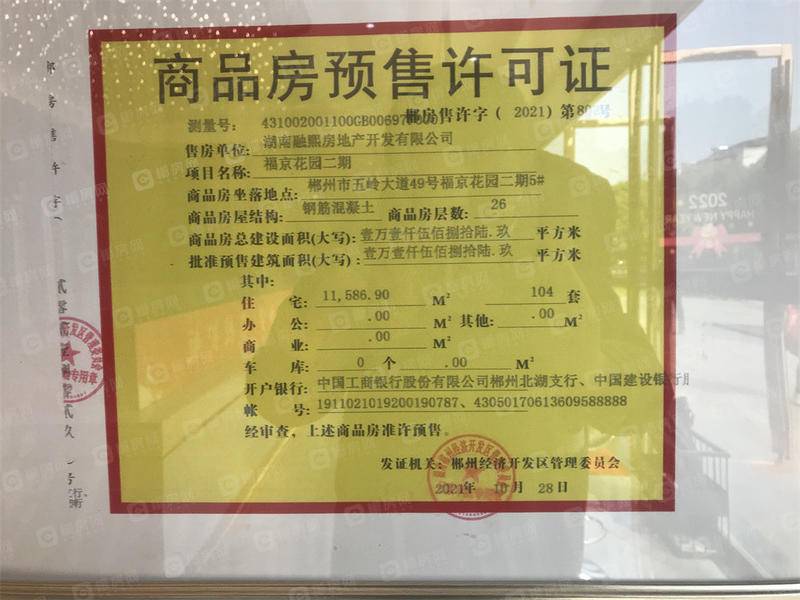 商品房预售许可证
郴房售许字（2021）第
测量号：431002001100GB00697
售房单位：湖南融熙房地产开发有限公司
项目名称：福京花园二期
商品房坐落地点：郴州市五岭大道49号福京花园二期5#
商品房屋结构：钢筋混凝土 商品房层数：26
商品房总建设面积(大写)：壹万壹仟伍佰捌拾陆.玖 平方米
批准预售建筑面积(大写)：壹万壹仟伍佰捌拾陆.玖 平方米
其中：
住 宅：11,586.90 M² 104 套
办 公：.00 M² 其他：.00 M²
商 业：.00 M²
车 库：0 个 .00 M²
开户银行：中国工商银行股份有限公司郴州北湖支行、中国建设银行
帐 号：1911021019200190787、43050170613609588888
经审查，上述商品房准许预售。
发证机关：郴州经济开发区管理委员会
2021年 10月 28日
郴房售许字
2022
HAPPY NEW YEAR